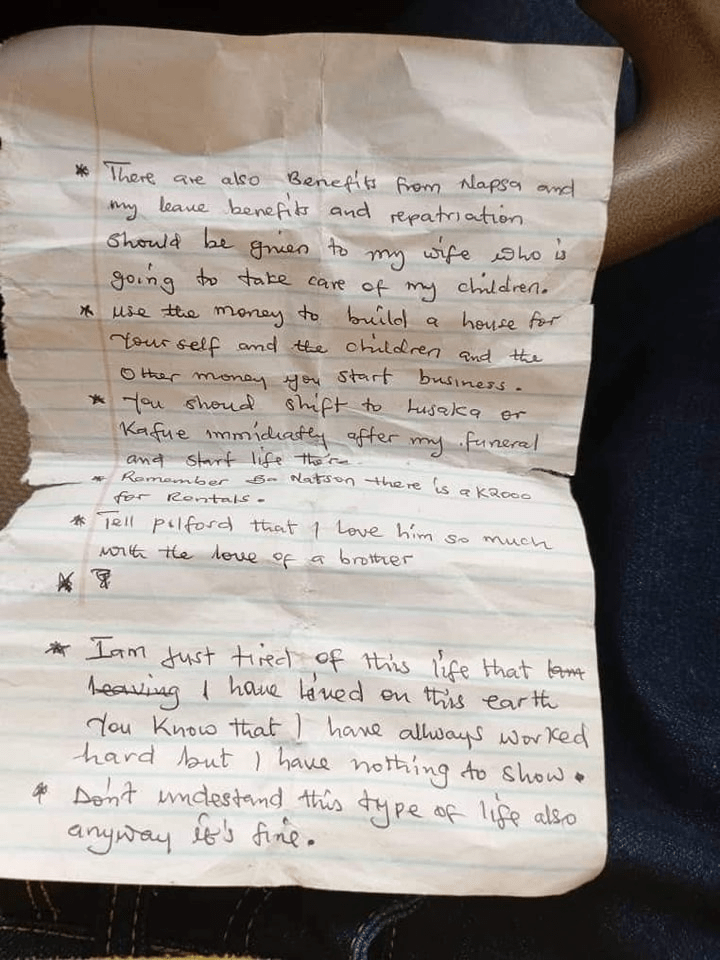 * There are also Benefits from Napsa and
my leave benefits and repatriation
should be given to my wife who is
going to take care of my children.
* use the money to build a house for
Your self and the children and the
Other money you start business.
* You shoud shift to Lusaka or
Kafue immidiatly after my funeral
and start life there
* Remember Ba Natson there is a K2000
for Rentals.
* Tell pilford that I love him so much
with the love of a brother
*
* I am just tired of this life that
leaving I have lived on this earth
You Know that I have allways worked
hard but I have nothing to show.
* Don't undestand this type of life also
anyway it's fine.